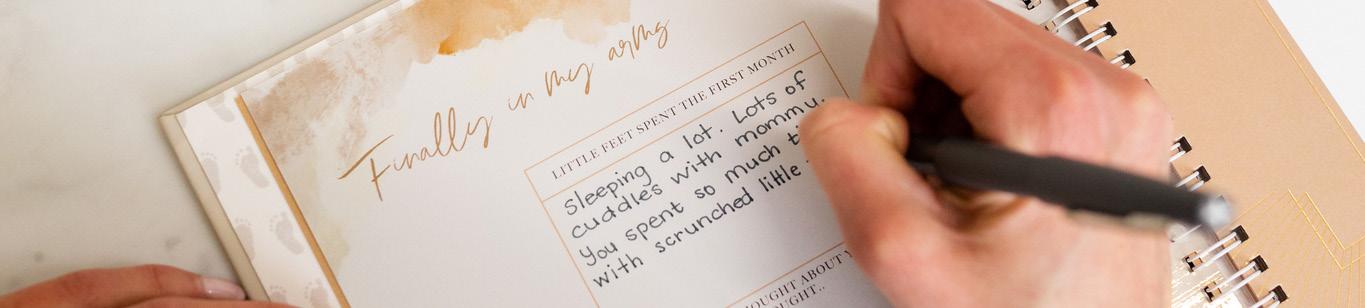 Finally in my arms
LITTLE FEET SPENT THE FIRST MONTH
Sleeping a lot. Lots of
cuddles with mommy.
You spent so much
with scrunched little
OUGHT ABOUT